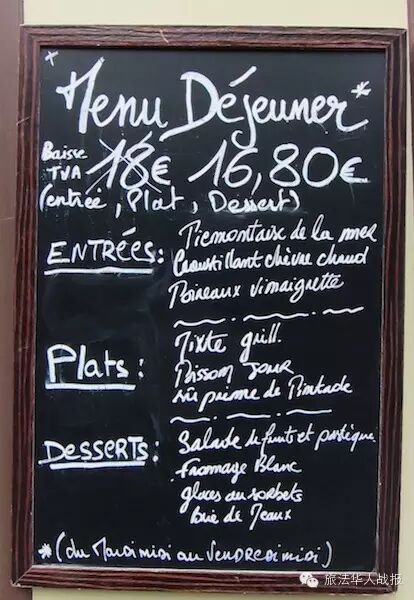 * Menu Déjeuner *
Baisse TVA 18€ 16,80€
(entrée, Plat, Dessert)
ENTRÉES: Piemontaise de la mer
Croustillant chèvre chaud
Poireaux vinaigrette
Plats: Mixte grill.
Poisson Jour
Suprême de Pintade
DESSERTS: Salade de fruits et pastèque
Fromage Blanc
glaces ou sorbets
Brie de Meaux
*(du Mardi midi au Vendredi midi)
旅法华人战报